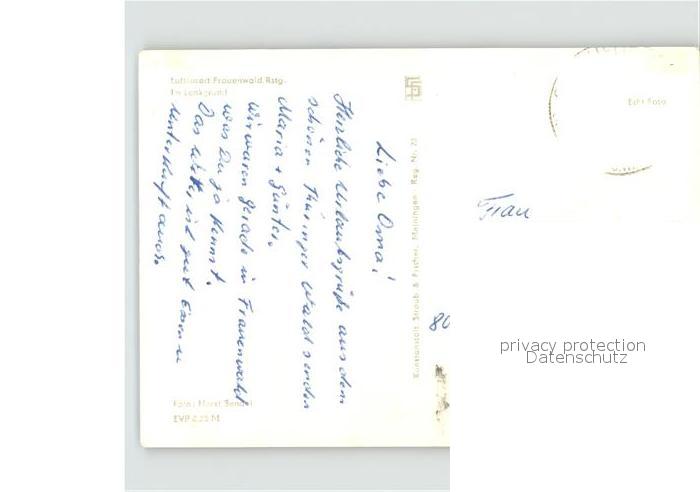 Luftkurort Frauenwald/Rstg.
Im Lenkgrund
Liebe Oma!
Herzliche Urlaubsgrüße aus dem
schönen Thüringer Wald senden
Maria + Günter.
Wir waren gerade in Frauenwald
was Du ja kennst.
Das Wetter ist gut Essen u
Unterkunft auch.
Kunstanstalt Straub & Fischer, Meiningen
Reg. Nr. 22
Foto: Horst
EVP 0,25 M
Echt Foto
Frau
80
privacy protection
Datenschutz